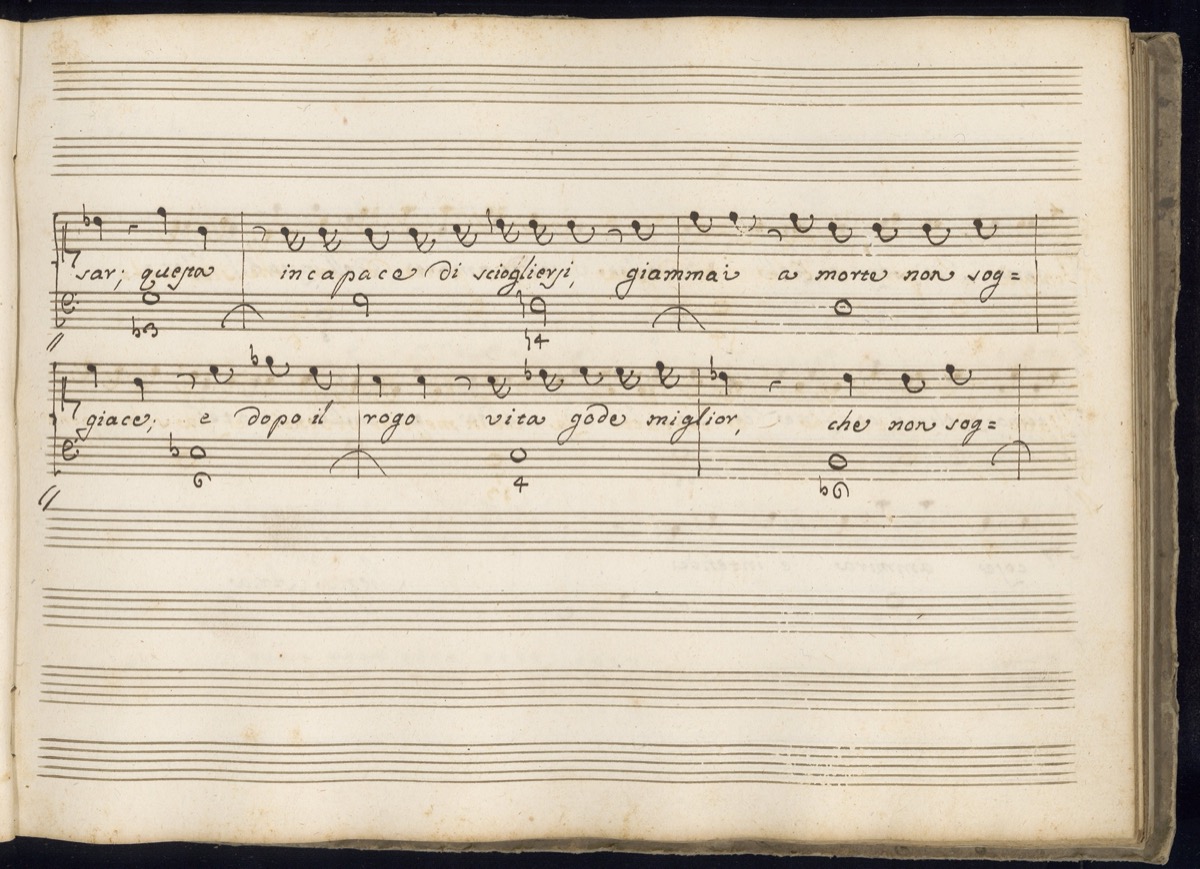 sar; questa incapace di sciogliersi, giammai a morte non sog=
♭3 ♮4
giace; e dopo il rogo vita gode miglior, che non sog=
6 4 ♭6